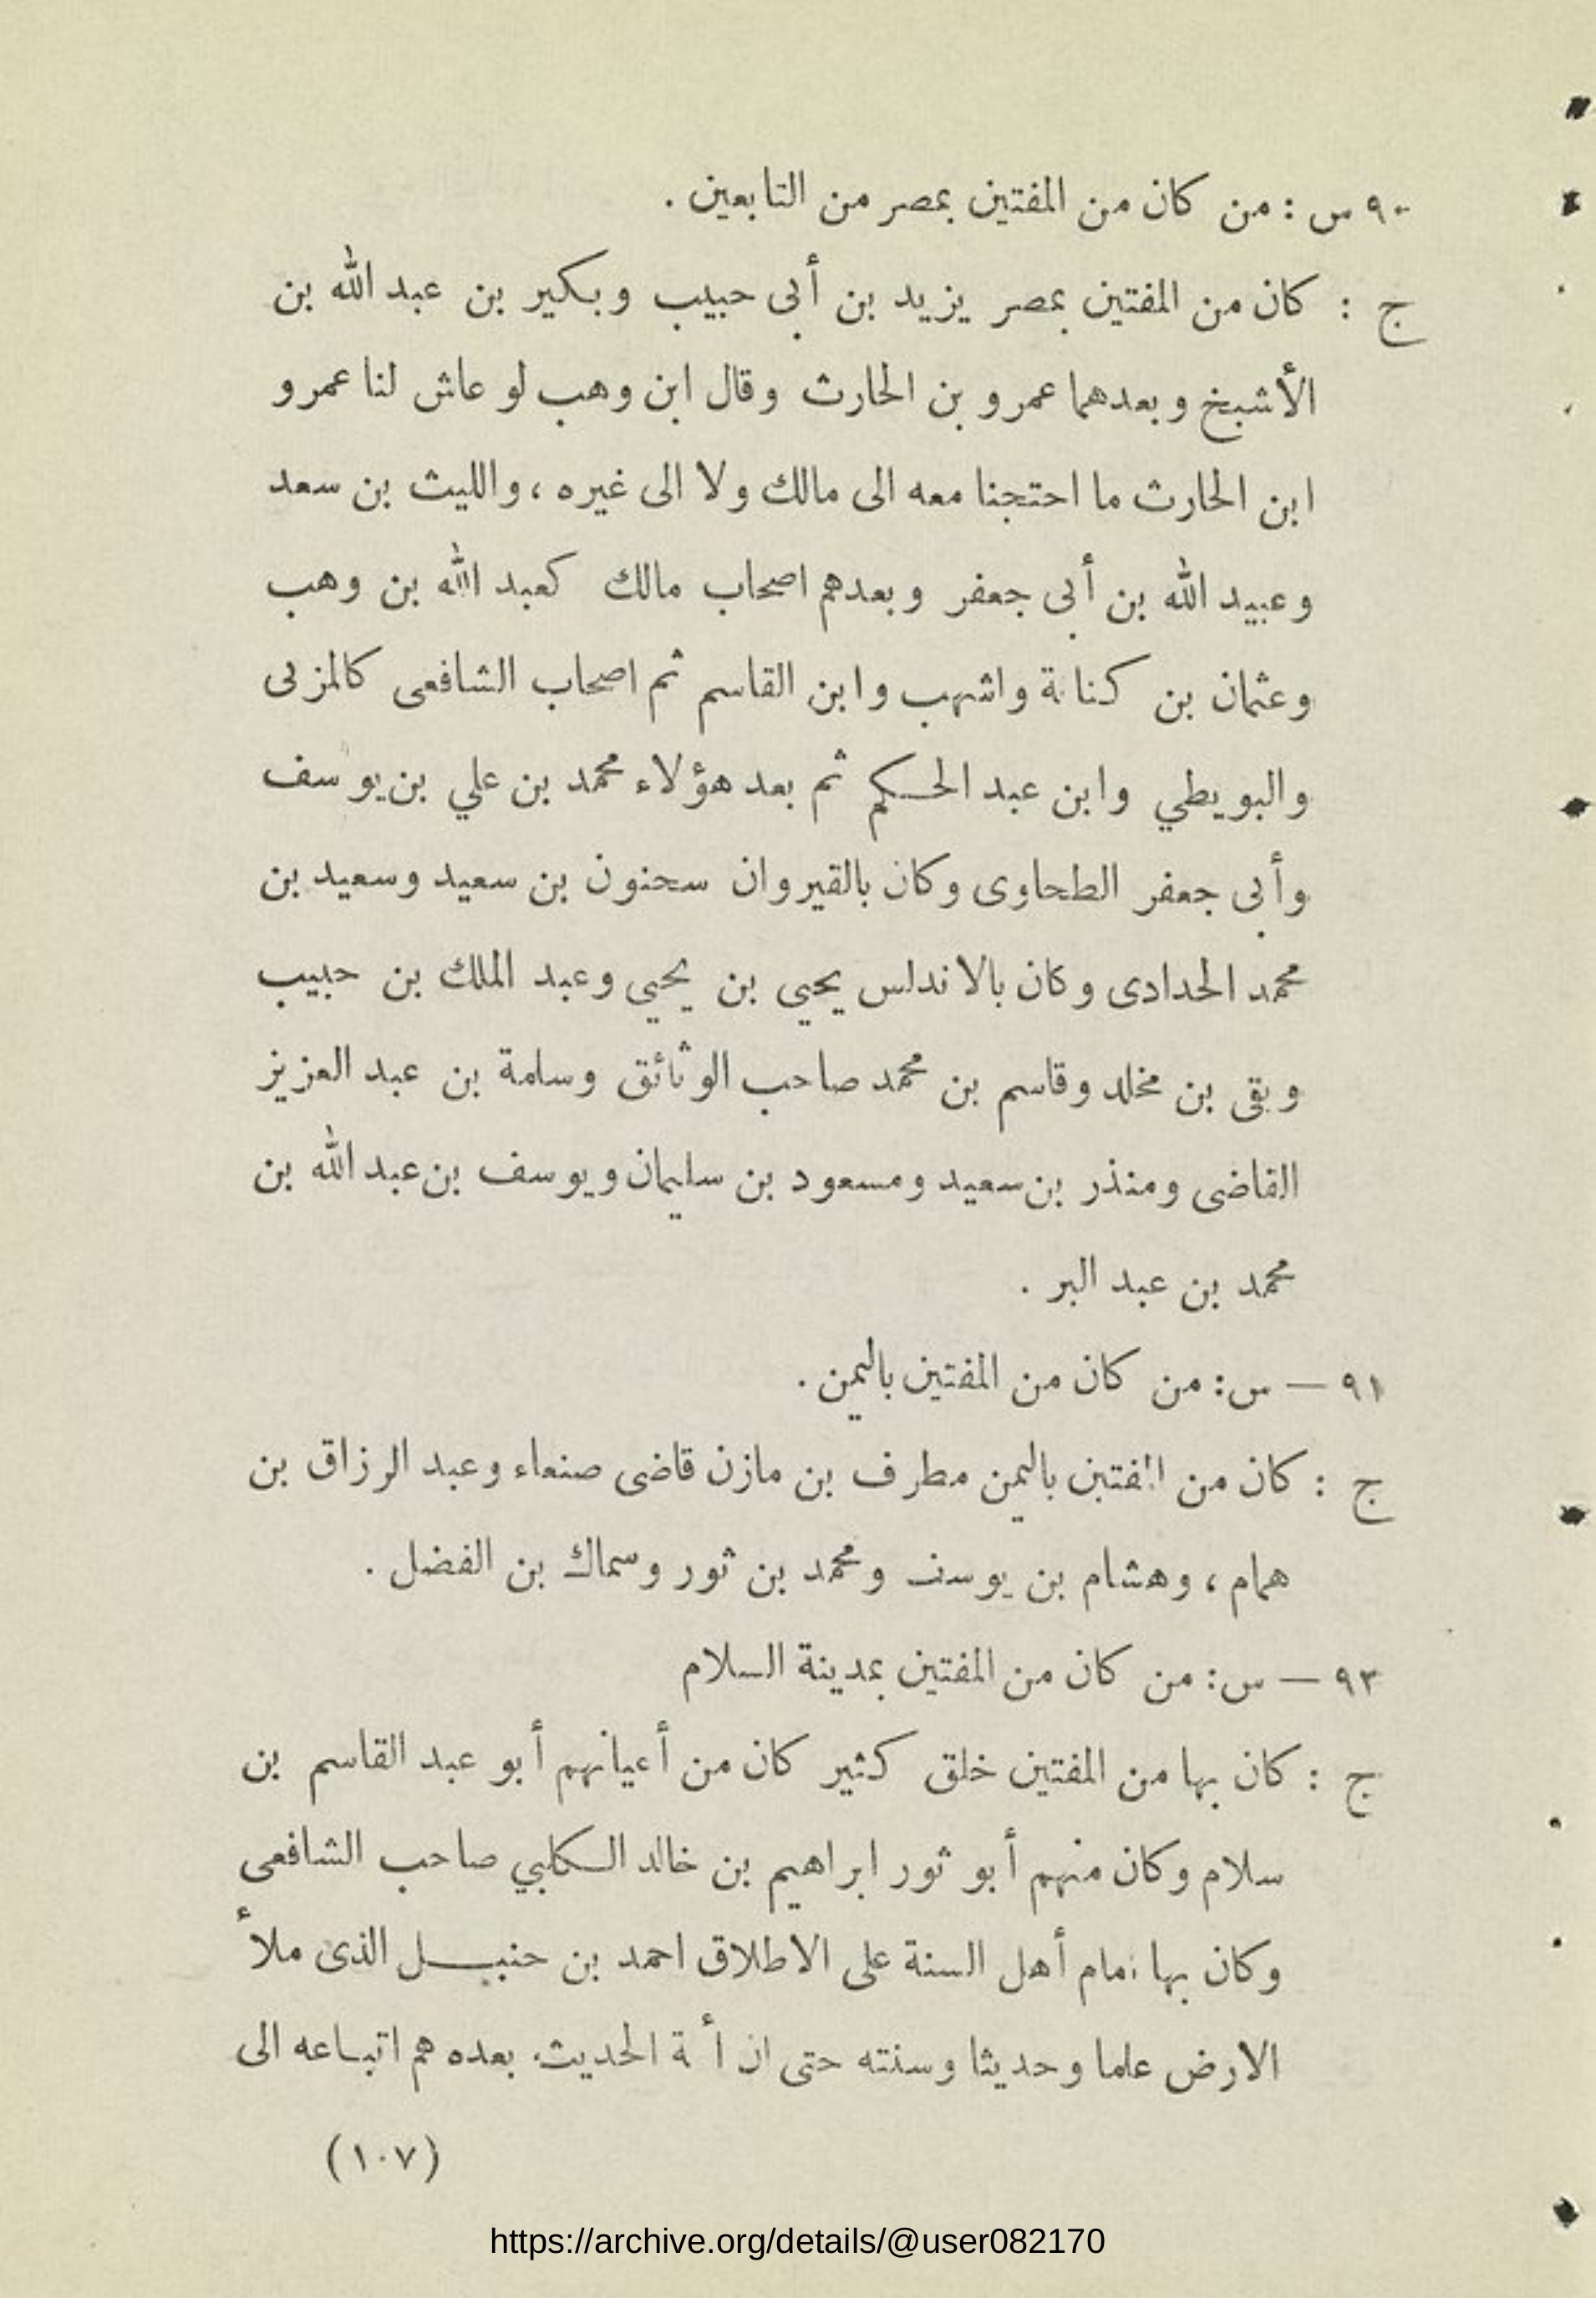 ٩٠ س : من كان من المفتين بمصر من التابعين .
ج : كان من المفتين بمصر يزيد بن أبى حبيب وبكير بن عبد الله بن
الأشبخ وبعدهما عمرو بن الحارث وقال ابن وهب لو عاش لنا عمرو
ابن الحارث ما احتجنا معه الى مالك ولا الى غيره ، والليث بن سعد
وعبيد الله بن أبى جعفر وبعدهم اصحاب مالك كعبد الله بن وهب
وعثمان بن كنانة واشهب وابن القاسم ثم اصحاب الشافعى كالمزنى
والبويطي وابن عبد الحكم ثم بعد هؤلاء محمد بن علي بن يوسف
وأبى جعفر الطحاوى وكان بالقيروان سحنون بن سعيد وسعيد بن
محمد الحدادى وكان بالاندلس يحيي بن يحيي وعبد الملك بن حبيب
وبقى بن مخلد وقاسم بن محمد صاحب الوثائق وسلمة بن عبد العزيز
القاضى ومنذر بن سعيد ومسعود بن سليمان ويوسف بن عبد الله بن
محمد بن عبد البر .
٩١ — س : من كان من المفتين باليمن .
ج : كان من المفتين باليمن مطرف بن مازن قاضى صنعاء وعبد الرزاق بن
همام ، وهشام بن يوسف ومحمد بن ثور وسماك بن الفضل .
٩٣ — س : من كان من المفتين بمدينة السلام
ج : كان بها من المفتين خلق كثير كان من أعيانهم أبو عبد القاسم بن
سلام وكان منهم أبو ثور ابراهيم بن خالد الكلبي صاحب الشافعى
وكان بها امام أهل السنة على الاطلاق احمد بن حنبل الذى ملأ
الارض علما وحديثا وسنته حتى ان أئمة الحديث بعده هم اتباعه الى
(١٠٧)
https://archive.org/details/@user082170